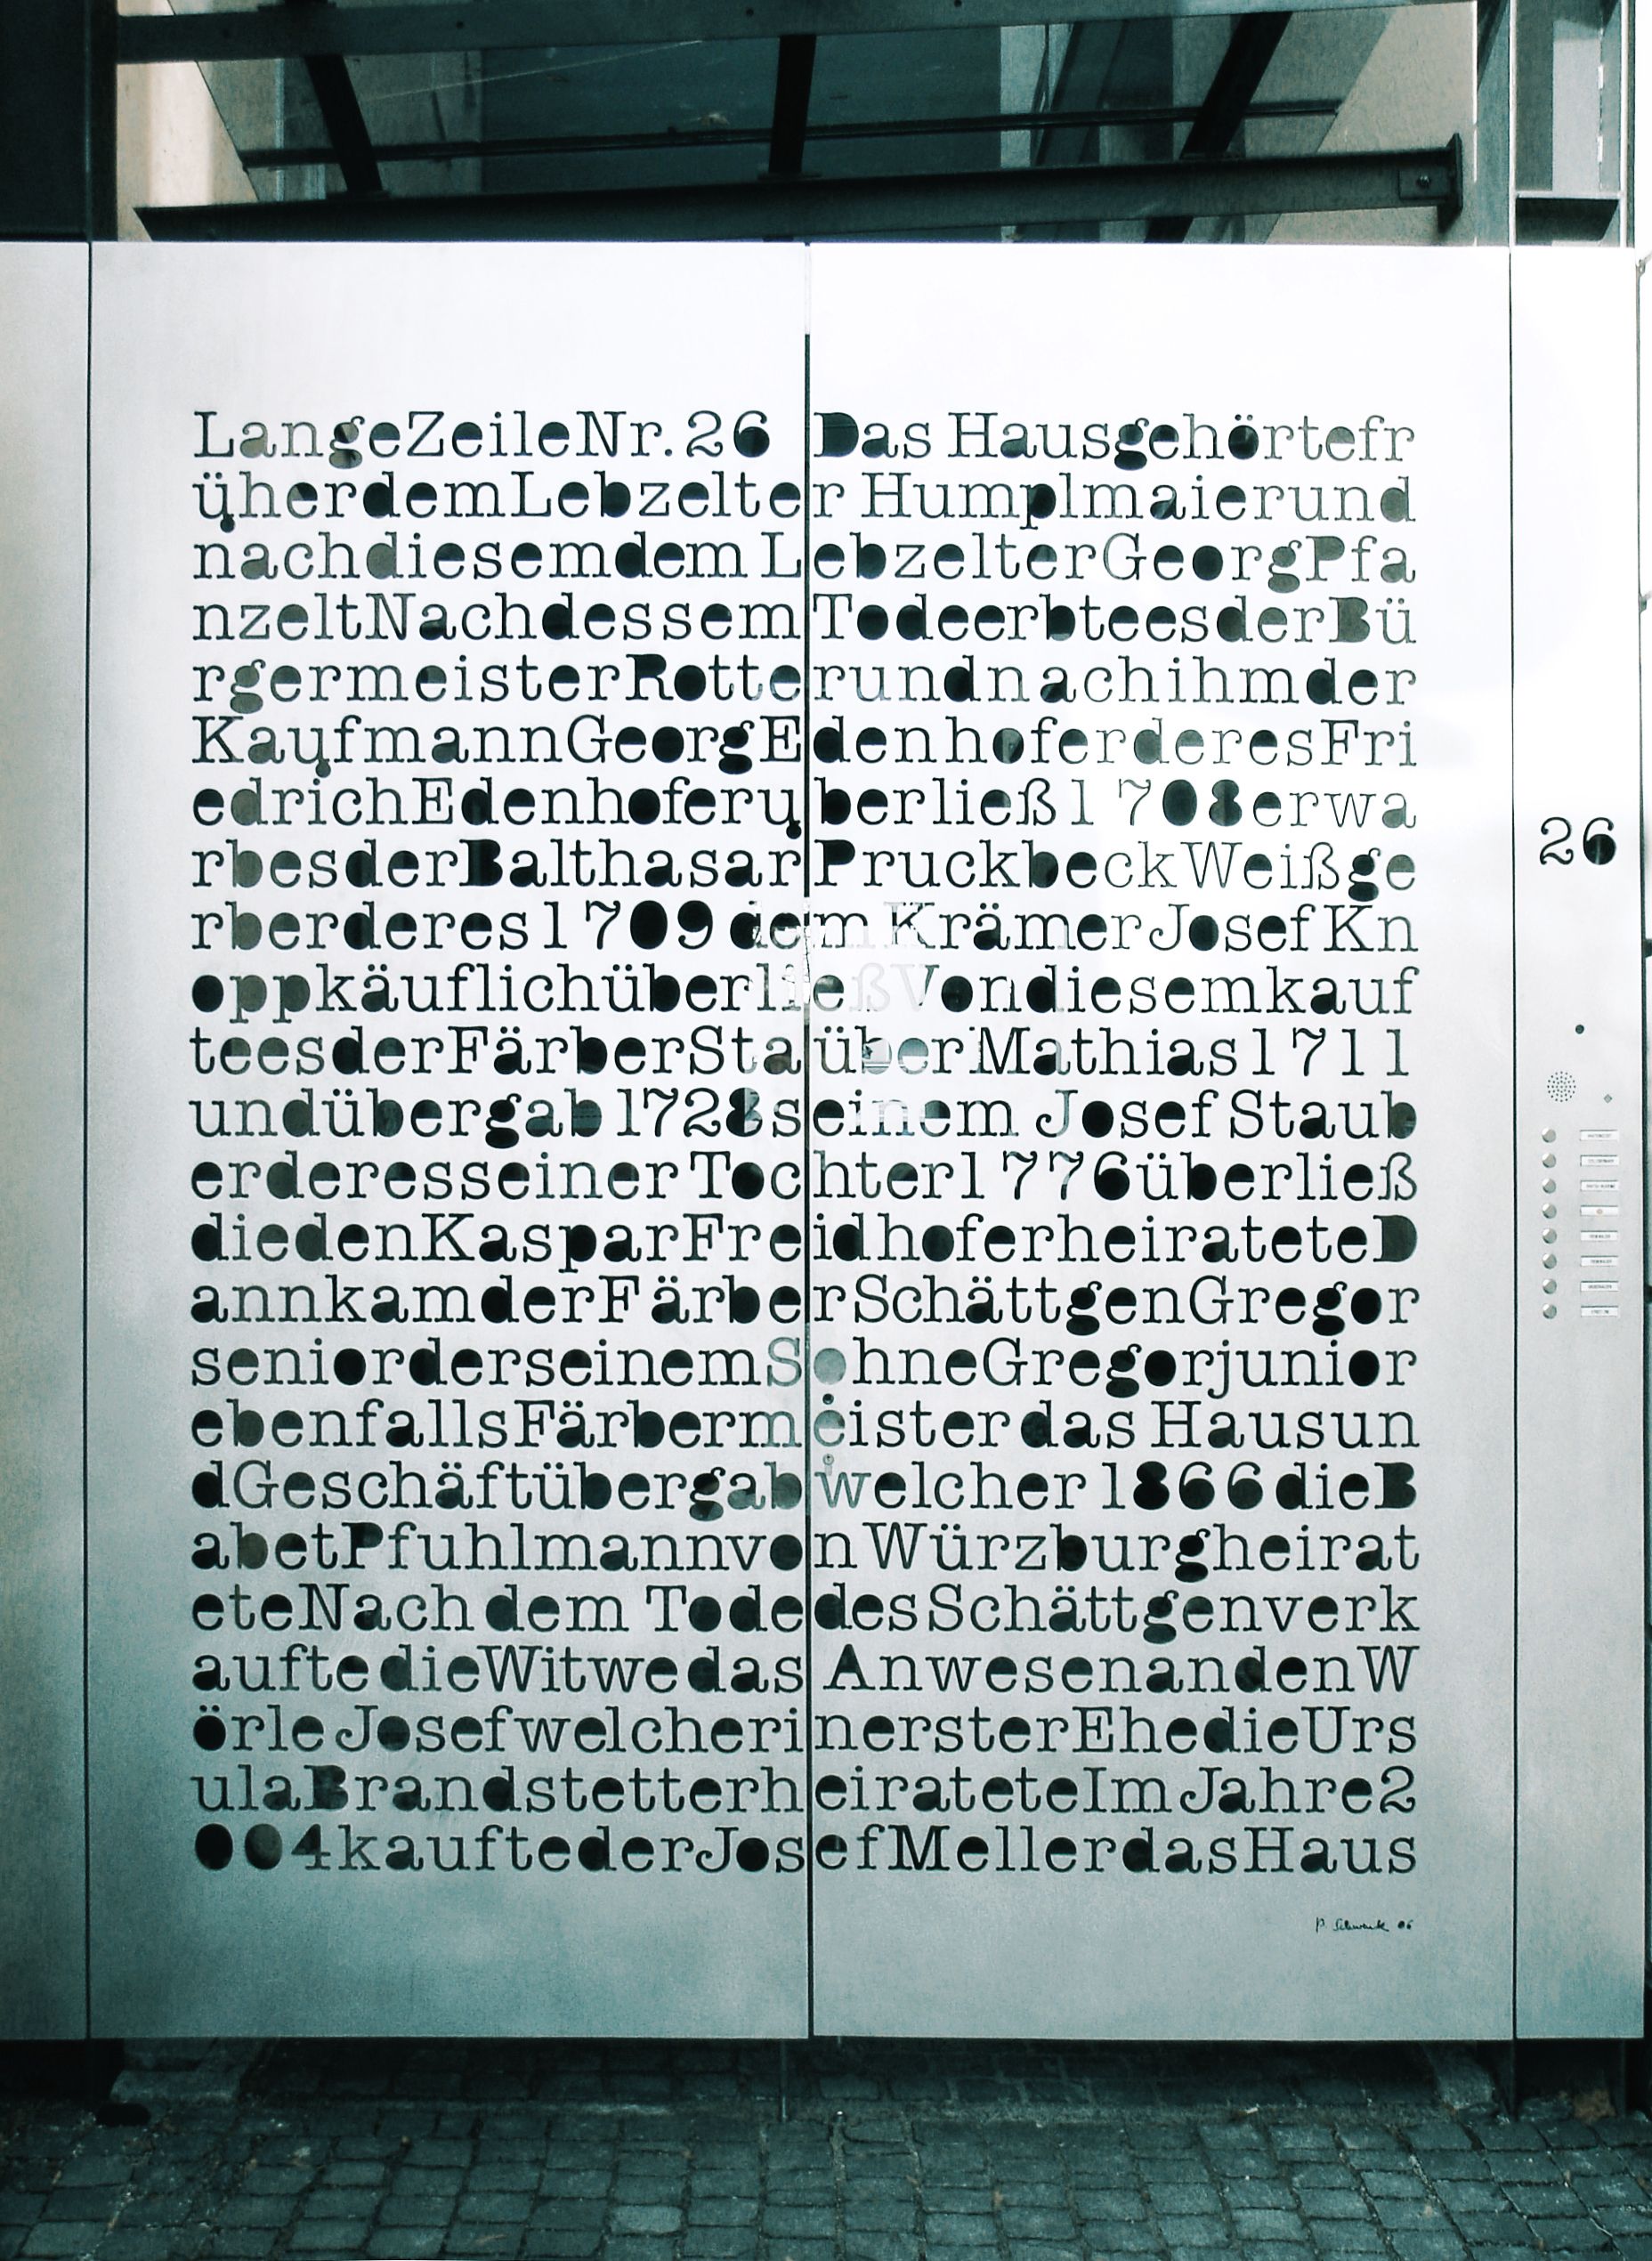 LangeZeileNr.26 Das Hausgehörtefr
üherdemLebzelter Humplmaierund
nachdiesemdem LebzelterGeorgPfa
nzeltNachdessem TodeerbteesderBü
rgermeisterRotterundnachihmder
KaufmannGeorgEdenhoferderesFri
edrichEdenhoferuberließ1708erwa
rbesderBalthasarPruckbeckWeißge
rberderes1709dem KrämerJosefKn
oppkäuflichüberließVondiesemkauf
teesderFärberStaüberMathias1711
undübergab1728seinem JosefStaub
erderesseinerTochter1776überließ
diedenKasparFreidhoferheirateteD
annkamderFärberSchättgenGregor
seniorderseinemSohneGregorjunior
ebenfallsFärbermeisterdas Hausun
dGeschäftübergabwelcher1866dieB
abetPfuhlmannvon Würzburgheirat
eteNach dem TodedesSchättgenverk
auftedieWitwedas AnwesenandenW
örleJosefwelcherinersterEhedieUrs
ulaBrandstetterheirateteIm Jahre2
004kauftederJosefMellerdasHaus
P. Schwenk 06
26